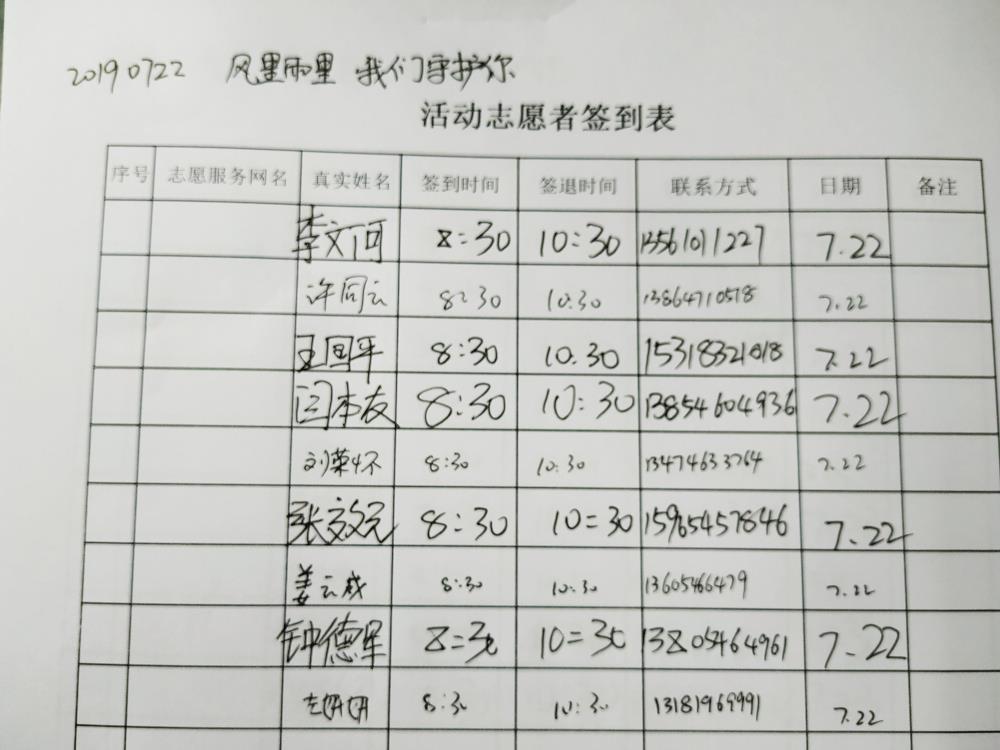 20190722 风里雨里 我们守护你
活动志愿者签到表
序号 志愿服务网名 真实姓名 签到时间 签退时间 联系方式 日期 备注
李文河 8:30 10:30 13561011227 7.22
许同云 8:30 10:30 13864710518 7.22
王国平 8:30 10:30 15318321018 7.22
闫本友 8:30 10:30 13854604936 7.22
刘荣怀 8:30 10:30 13474633764 7.22
张效元 8:30 10:30 15965457846 7.22
姜云成 8:30 10:30 13605466479 7.22
钟德军 8:30 10:30 13805464961 7.22
8:30 10:30 13181969991 7.22